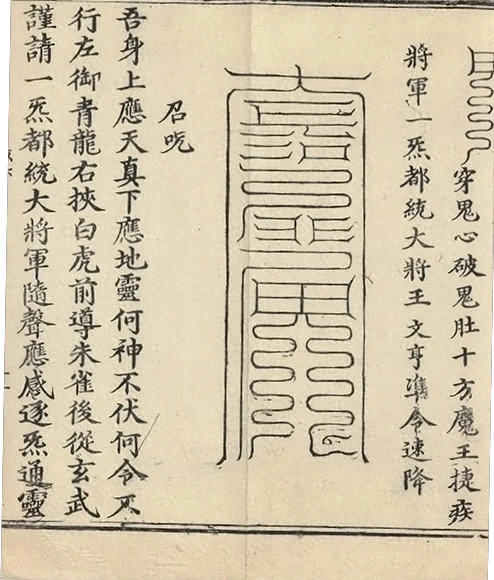 穿鬼心破鬼肚十方魔王捷疾
將軍一炁都統大將王文亨准令速降
召咒
吾身上應天真下應地靈何神不伏何令不
行左御青龍右挾白虎前導朱雀後從玄武
謹請一炁都統大將軍隨聲應感逐炁通靈